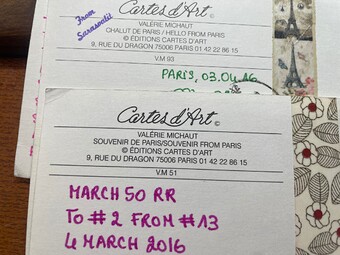 From
Sarasodil
Cartes d'Art ©
VALÉRIE MICHAUT
CHALUT DE PARIS / HELLO FROM PARIS
© ÉDITIONS CARTES D'ART
9, RUE DU DRAGON 75006 PARIS 01 42 22 86 15
V.M 93
PARIS, 03.04.16
Cartes d'Art ©
VALÉRIE MICHAUT
SOUVENIR DE PARIS/SOUVENIR FROM PARIS
© ÉDITIONS CARTES D'ART
9, RUE DU DRAGON 75006 PARIS 01 42 22 86 15
V.M 51
MARCH 50 RR
TO #2 FROM #13
4 MARCH 2016